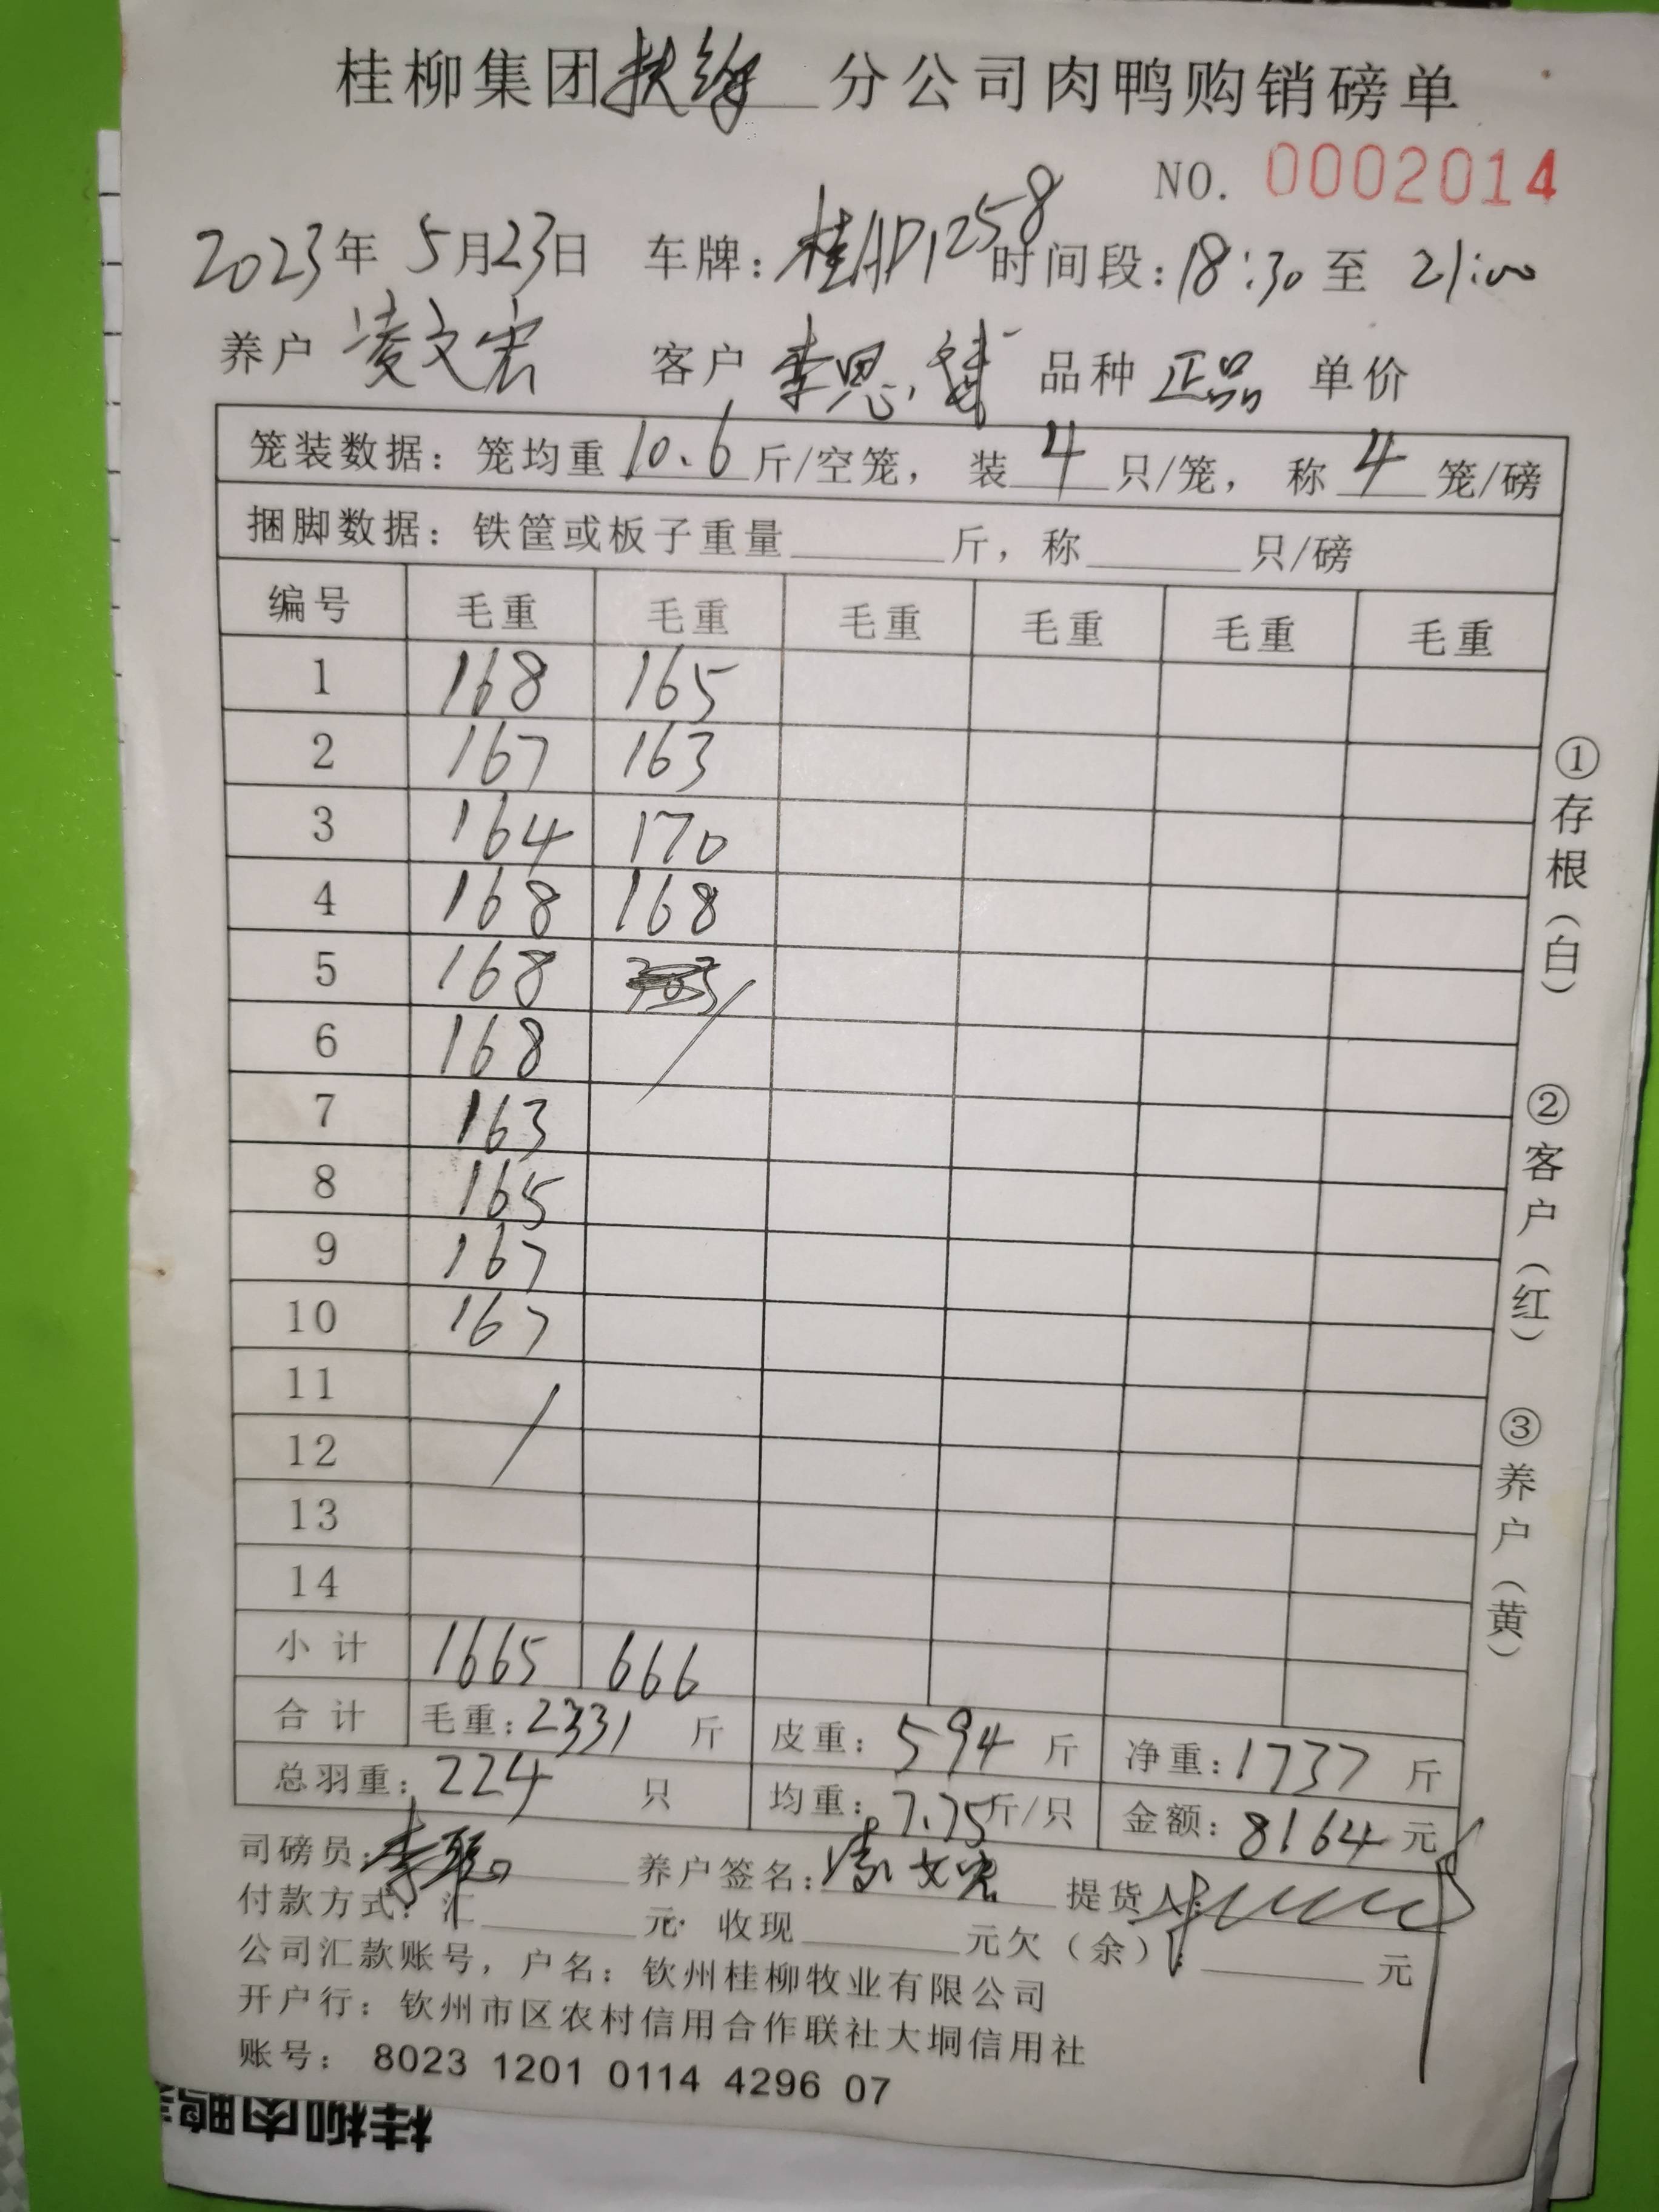 桂柳集团扶绥分公司肉鸭购销磅单
NO. 0002014
2023年 5月23日 车牌:桂AD1258 时间段:18:30至 21:00
养户 凌文宏 客户 李恩 品种 正品 单价
笼装数据:笼均重10.6斤/空笼, 装4只/笼, 称4笼/磅
捆脚数据:铁筐或板子重量______斤,称______只/磅
编号 毛重 毛重 毛重 毛重 毛重 毛重
1 168 165
2 167 163
3 164 170
4 168 168
5 168
6 168
7 163
8 165
9 167
10 167
11
12
13
14
小计 1665 666
合计 毛重:2331斤 皮重:594斤 净重:1737斤
总羽重:224只 均重:7.75斤/只 金额:8164元
司磅员: 养户签名:凌文宏 提货人:
付款方式:汇______元 收现______元欠(余):______元
公司汇款账号,户名:钦州桂柳牧业有限公司
开户行:钦州市区农村信用合作联社大垌信用社
账号: 8023 1201 0114 4296 07
①存根(白) ②客户(红) ③养户(黄)
桂柳肉鸭